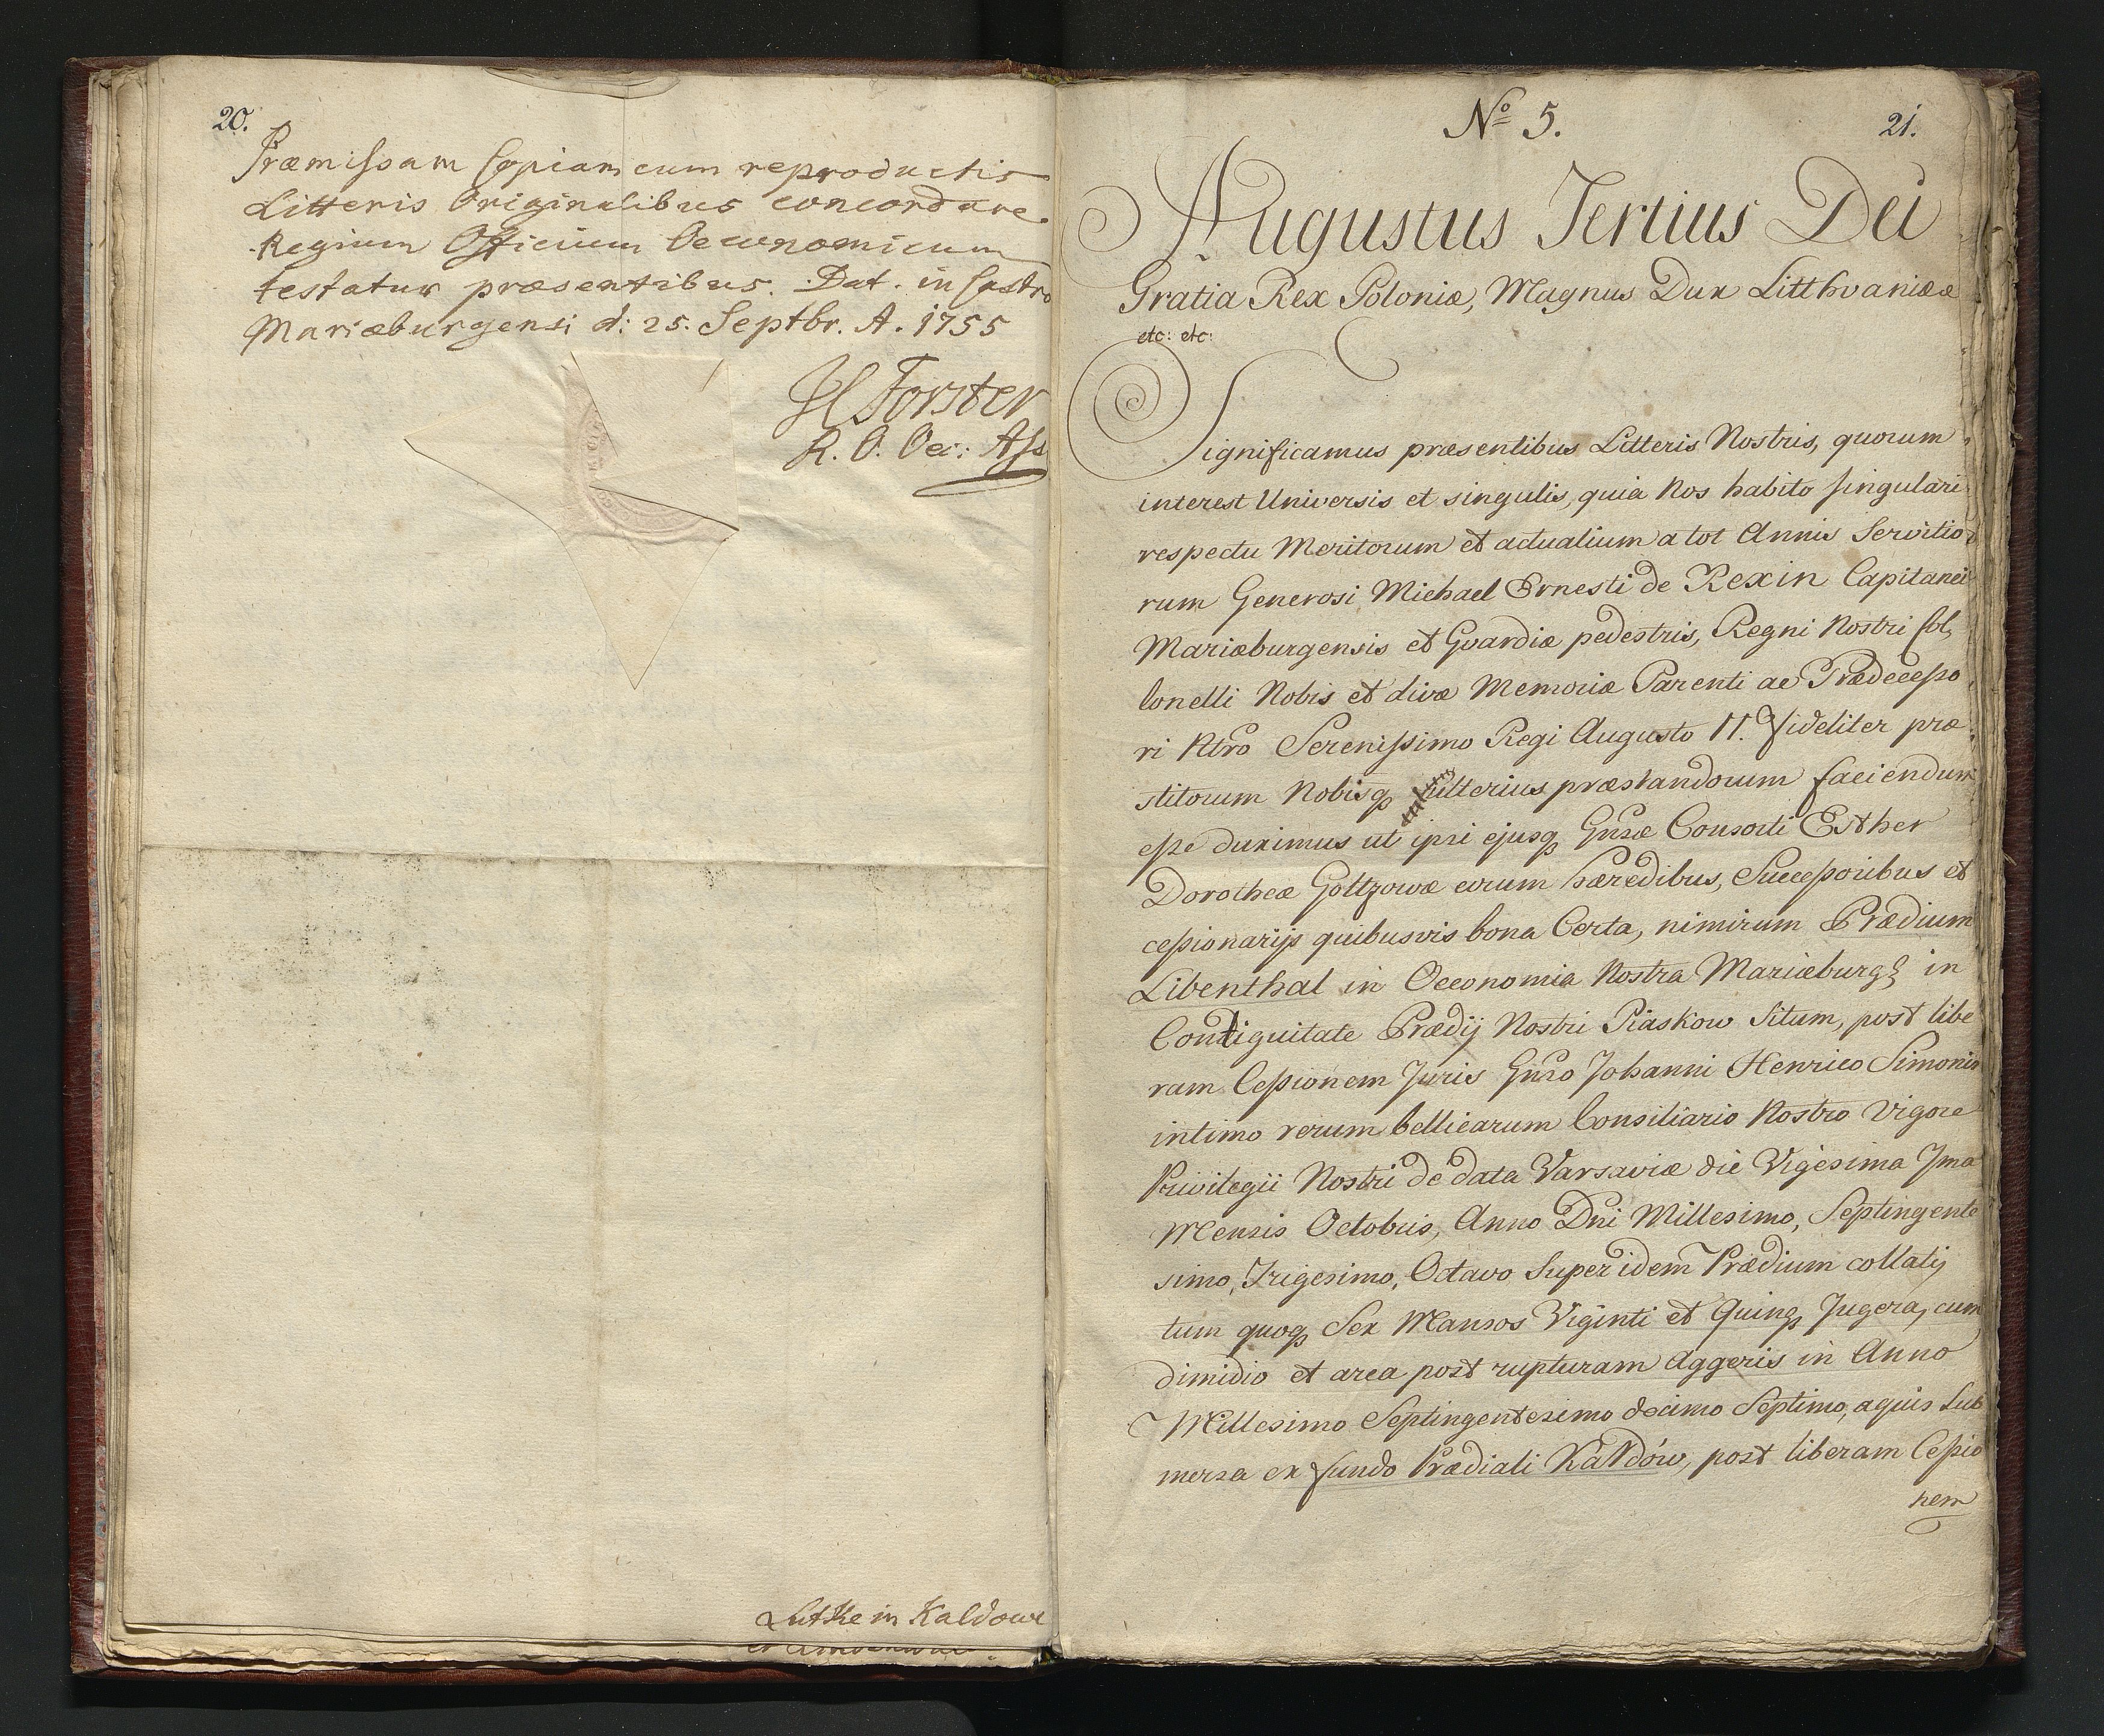 20.
Præmissam Copiam cum reproductis
Litteris Originalibus concordare
Regium Officium Oeconomicum
testatur præsentibus. Dat. in Castro
Mariæburgensi d: 25. Septbr. A. 1755
Forster
R. O. Oec: Ass
Lutke in Kaldowe
No 5.
21.
Augustus Tertius Dei
Gratia Rex Poloniæ, Magnus Dux Litthvaniæ
etc: etc:
Significamus præsentibus Litteris Nostris, quorum
interest Universis et singulis, quia Nos habito singulari
respectu Meritorum et actualium a tot Annis Servitio
rum Generosi Michael Ernesti de Rexin Capitanei
Mariæburgensis et Gvardiæ pedestris, Regni Nostri Col,
lonelli Nobis et divæ Memoriæ Parenti ac Prædecesso
ri Ntro Serenissimo Regi Augusto II. fideliter præ
stitorum Nobisq ulterius præstandorum faciendum
esse duximus ut ipsi ejusq Gnsæ Consorti Esther
Dorotheæ Goltzowæ eorum hæredibus, Successoribus et
cessionarijs quibusvis bona Certa, nimirum Prædium
Libenthal in Oeconomia Nostra Mariæburg: in
Contiguitate Prædij Nostri Piaskow Situm, post libe
ram Cessionem Juris Gnso Johanni Henrico Simonis
intimo rerum bellicarum Consiliario Nostro Vigore
Privilegii Nostri de data Varsaviæ die Vigesima Jma
Mensis Octobris, Anno Dni Millesimo, Septingente
simo, Trigesimo, Octavo Super idem Prædium collatj
tum quoq Sex Mansos Viginti et Quinq Jugera, cum
dimidio et area post rupturam Aggeris in Anno
Millesimo Septingentesimo decimo Septimo, aquis Sub
mersa ex fundo Prædiali Kałdów, post liberam Cessio
nem